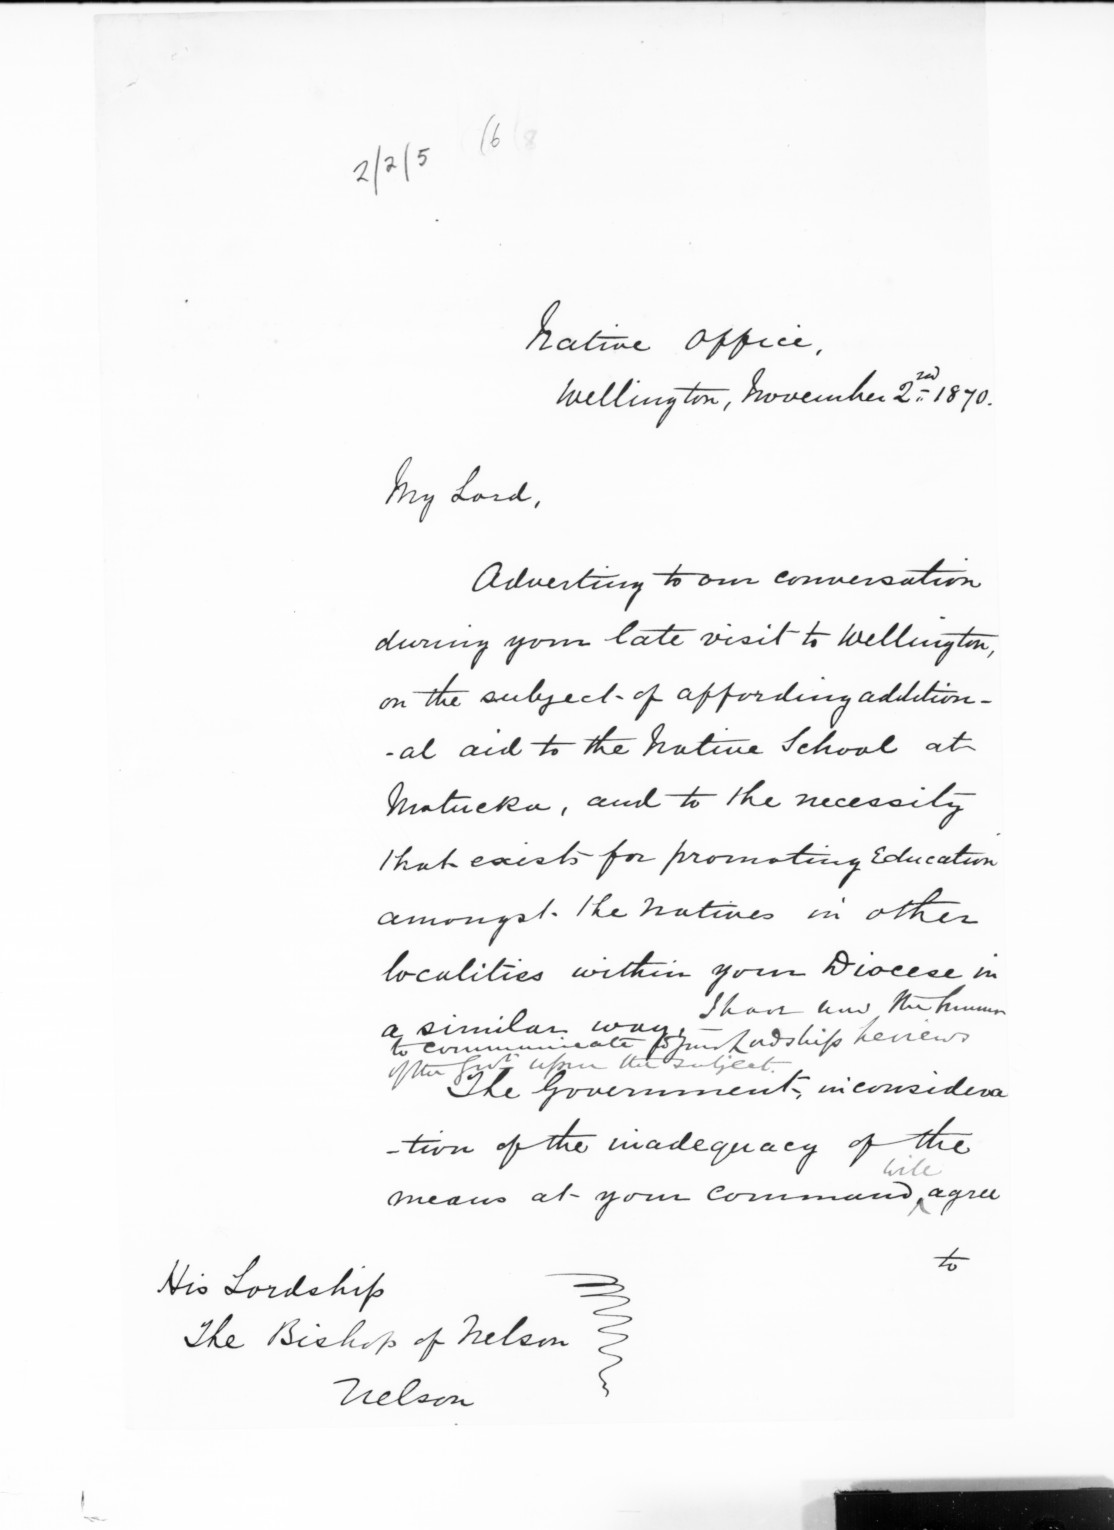 2/2/5 (6
Native Office,
Wellington, November 2nd 1870.
My Lord,
Adverting to our conversation
during your late visit to Wellington,
on the subject of affording addition-
-al aid to the Native School at
Motueka, and to the necessity
that exists for promoting Education
amongst the Natives in other
localities within your Diocese in
a similar way, I have now the honour
to communicate to your Lordship the views
of the Govt upon the subject.
The Government, in considera
-tion of the inadequacy of the
will
means at your command, agree
to
His Lordship
The Bishop of Nelson
Nelson